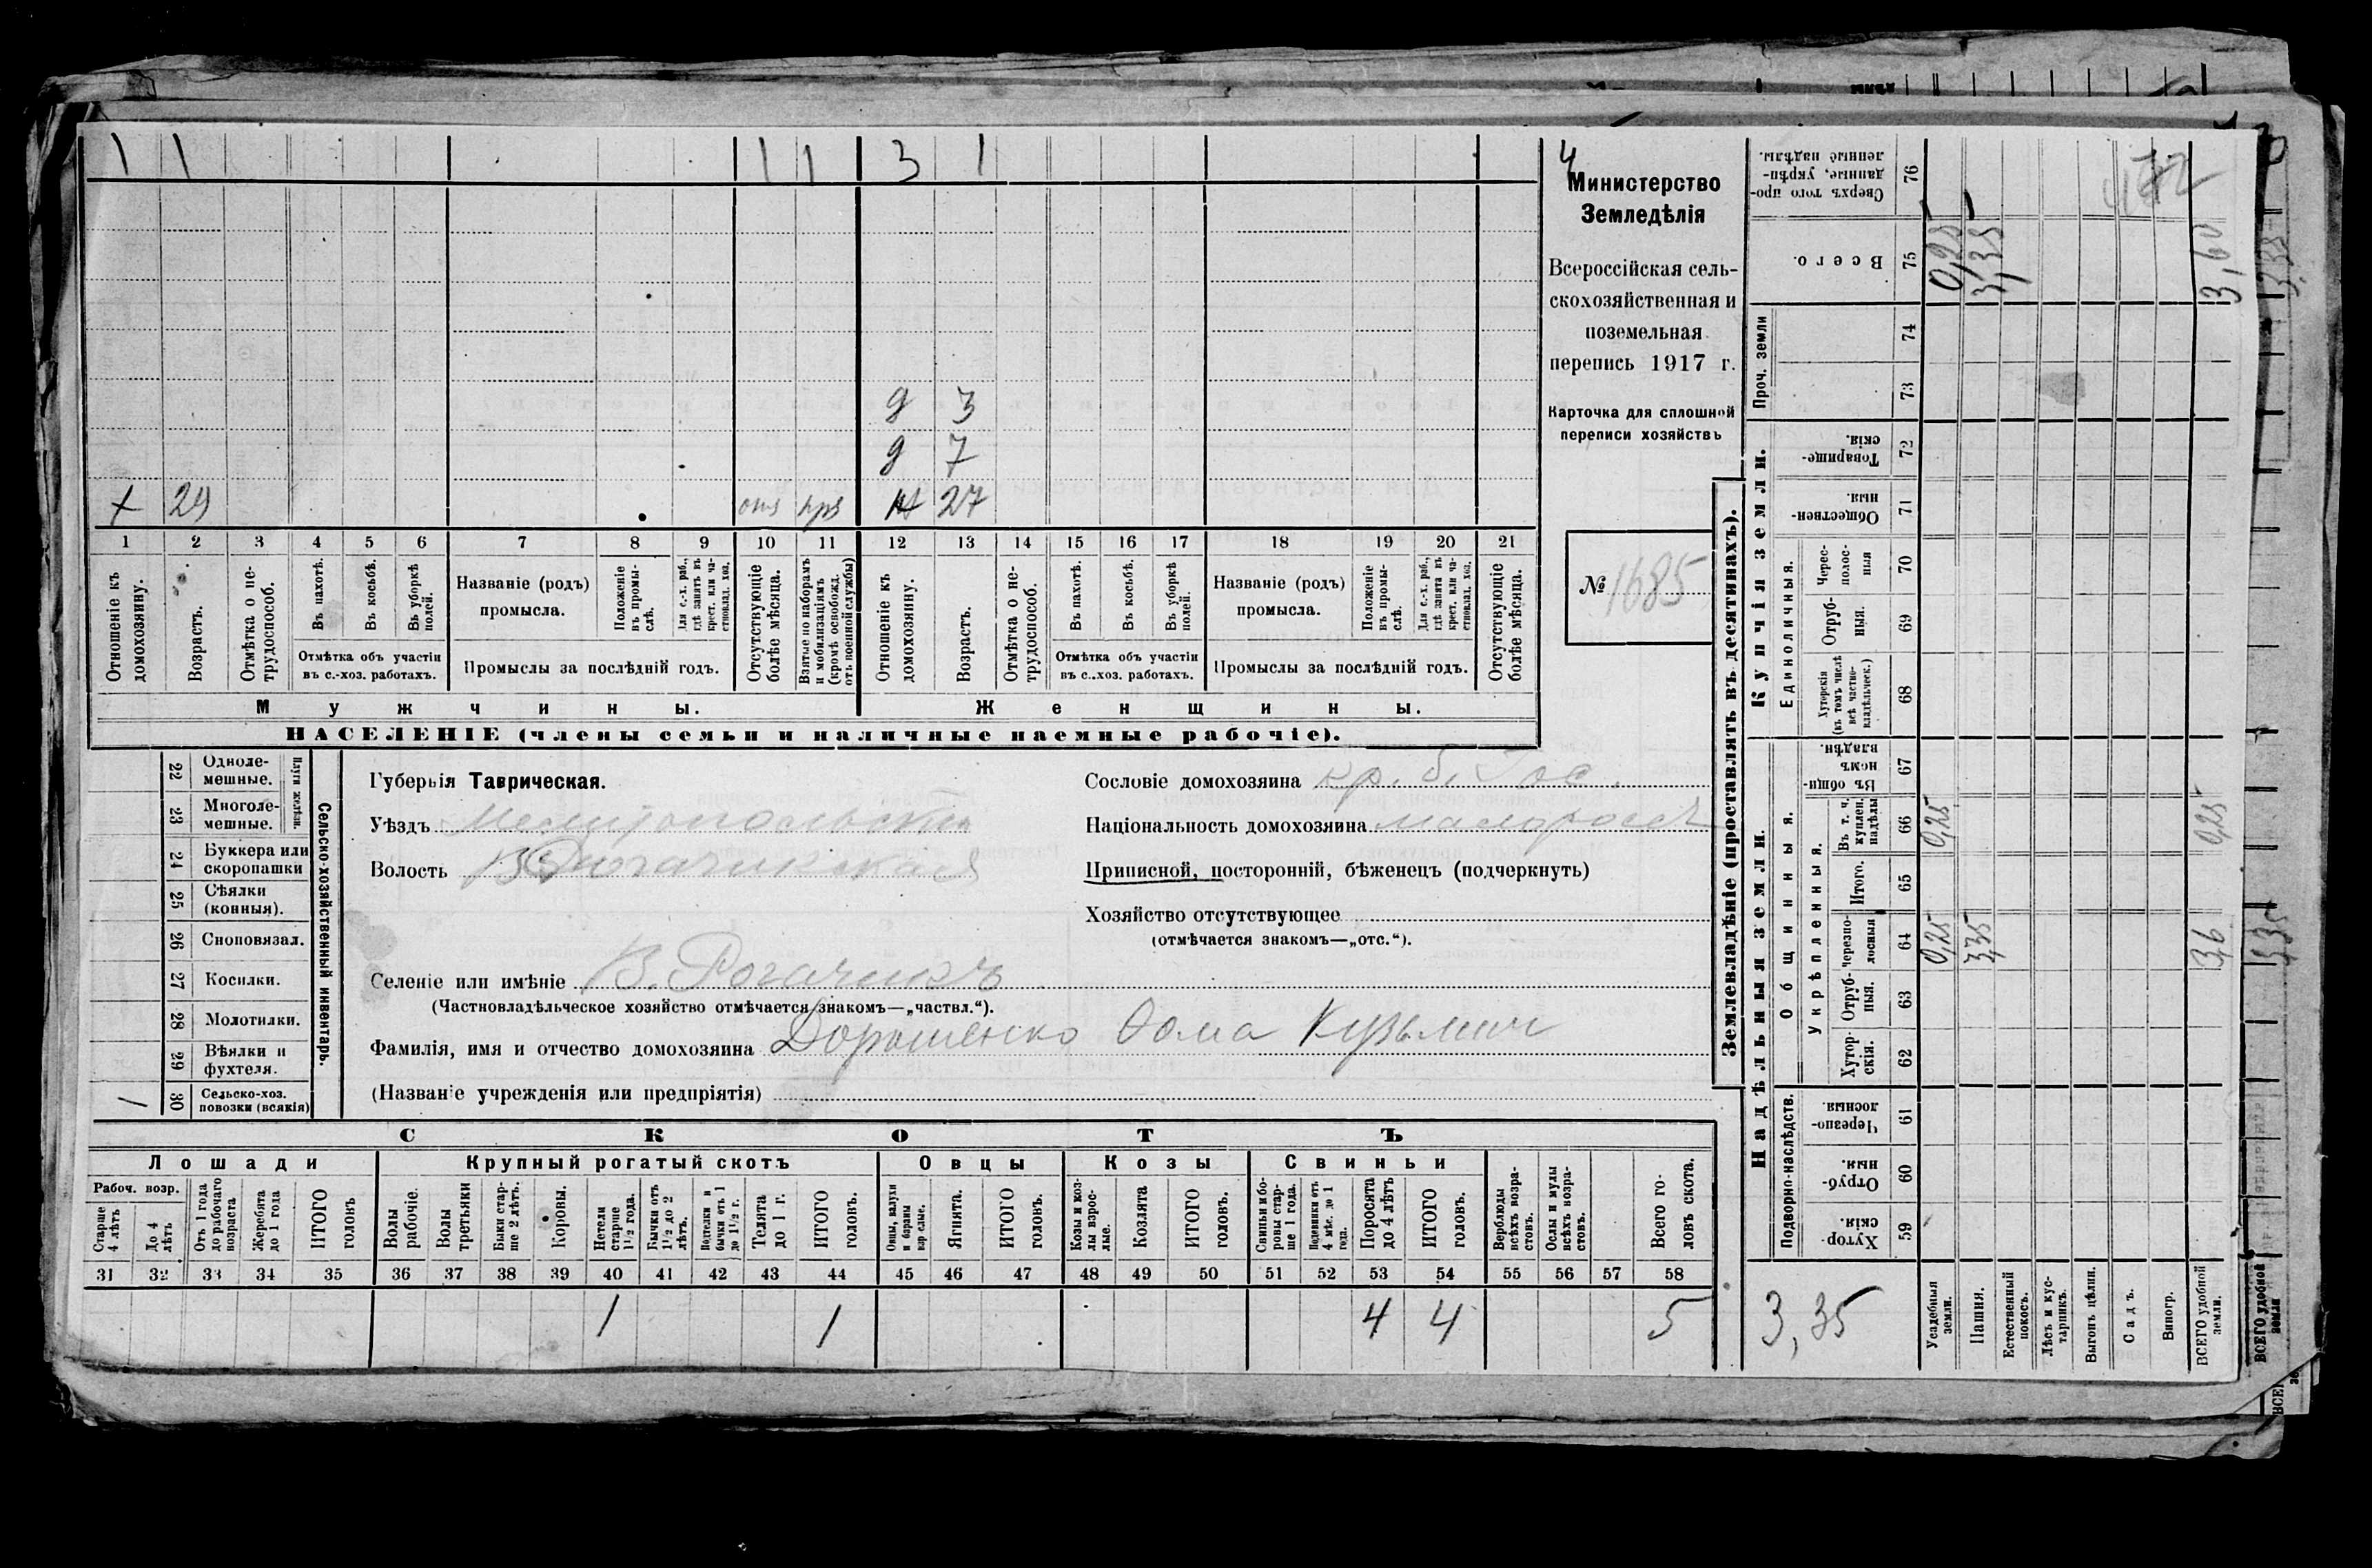 1 1 1 1 3 1
д 3
д 7
+ 29 отс
27
1 2 3 4 5 6 7 8 9 10 11 12 13 14 15 16 17 18 19 20 21
Отношеніе къ домохозяину.
Возрастъ.
Отмѣтка о нетрудоспособ.
Въ пахотѣ.
Въ косьбѣ.
Въ уборкѣ полей.
Отмѣтка объ участіи въ с.-хоз. работахъ.
Названіе (родъ) промысла.
Положеніе въ промыслѣ.
Для с.-х. раб., гдѣ занятъ въ крест. или частновлад. хоз.
Промыслы за послѣдній годъ.
Отсутствующіе болѣе мѣсяца.
Взятые по наборамъ и мобилизаціямъ (кромѣ освобожд. отъ военной службы)
Отношеніе къ домохозяину.
Возрастъ.
Отмѣтка о нетрудоспособ.
Въ пахотѣ.
Въ косьбѣ.
Въ уборкѣ полей.
Отмѣтка объ участіи въ с.-хоз. работахъ.
Названіе (родъ) промысла.
Положеніе въ промыслѣ.
Для с.-х. раб., гдѣ занята въ крест. или частновлад. хоз.
Промыслы за послѣдній годъ.
Отсутствующіе болѣе мѣсяца.
Мужчины.
Женщины.
НАСЕЛЕНІЕ (члены семьи и наличные наемные рабочіе).
4
Министерство
Земледѣлія
Всероссійская сель-
скохозяйственная и
поземельная
перепись 1917 г.
Карточка для сплошной
переписи хозяйствъ
№ 1685
Сельско-хозяйственный инвентарь.
Плуги желѣзн.
22 Одноле-
мешные.
23 Многоле-
мешные.
24 Буккера или
скоропашки
25 Сѣялки
(конныя).
26 Сноповязал.
27 Косилки.
28 Молотилки.
29 Вѣялки и
фухтеля.
1 30 Сельско-хоз.
повозки (всякія)
Губернія Таврическая.
Уѣздъ Мелитопольскій
Волость В Рогачикская
Селеніе или имѣніе В. Рогачикъ
(Частновладѣльческое хозяйство отмѣчается знакомъ—„частвл.“).
Фамилія, имя и отчество домохозяина Дорошенко Фома Кузьмич
(Названіе учрежденія или предпріятія)
Сословіе домохозяина кр. б. Гос.
Національность домохозяина малороссъ
Приписной, посторонній, бѣженецъ (подчеркнуть)
Хозяйство отсутствующее
(отмѣчается знакомъ—„отс.“).
СКОТЪ
Лошади
Крупный рогатый скотъ
Овцы
Козы
Свиньи
Рабоч. возр.
Старше 4 лѣтъ
До 4 лѣтъ
Отъ 1 года до рабочаго возраста
Жеребята до 1 года
ИТОГО головъ
Волы рабочіе.
Волы третьяки
Быки старше 2 лѣтъ.
Коровы.
Нетели старше 1 1/2 года.
Бычки отъ 1 1/2 до 2 лѣтъ.
Подтелки и бычки отъ 1 до 1 1/2 г.
Телята до 1 г.
ИТОГО головъ.
Овцы, валухи и бараны взрослые.
Ягнята.
ИТОГО головъ.
Козы и козлы взрослые.
Козлята
ИТОГО головъ.
Свиньи и боровы старше 1 года.
Подсвинки отъ 4 мѣс. до 1 года.
Поросята до 4 лѣтъ
ИТОГО головъ.
Верблюды всѣхъ возрастовъ.
Ослы и мулы всѣхъ возрастовъ.
Всего головъ скота.
31 32 33 34 35 36 37 38 39 40 41 42 43 44 45 46 47 48 49 50 51 52 53 54 55 56 57 58
1 1 4 4 5
Землевладѣніе (проставлять въ десятинахъ).
Купчія земли.
Надѣльныя земли.
Сверхъ того проданные, укрѣпленные надѣлы. 76
Всего. 75 0,25 3,35 3,60
Проч. земли 74 73
Товарищескія. 72
Общественныя. 71
Единоличныя.
Чересполосныя 70
Отрубныя. 69
Хуторскія (въ томъ числѣ всѣ частновладѣльческ.) 68
Общинныя.
Въ общинномъ владѣн. 67
Укрѣпленныя.
Въ т. ч. куплен. надѣлы 66 0,25 0,25
Итого. 65
Черезполосныя 64 0,25 3,35 3,6
Отрубныя. 63
Хуторскія. 62
Подворно-наслѣдств.
Черезполосныя. 61
Отрубныя. 60
Хуторскія. 59
3,35
Усадебныя земли.
Пашня.
Естественный покосъ.
Лѣсъ и кустарникъ.
Выгонъ цѣлин.
Садъ.
Виногр.
ВСЕГО удобной земли.
ВСЕГО удобной земли